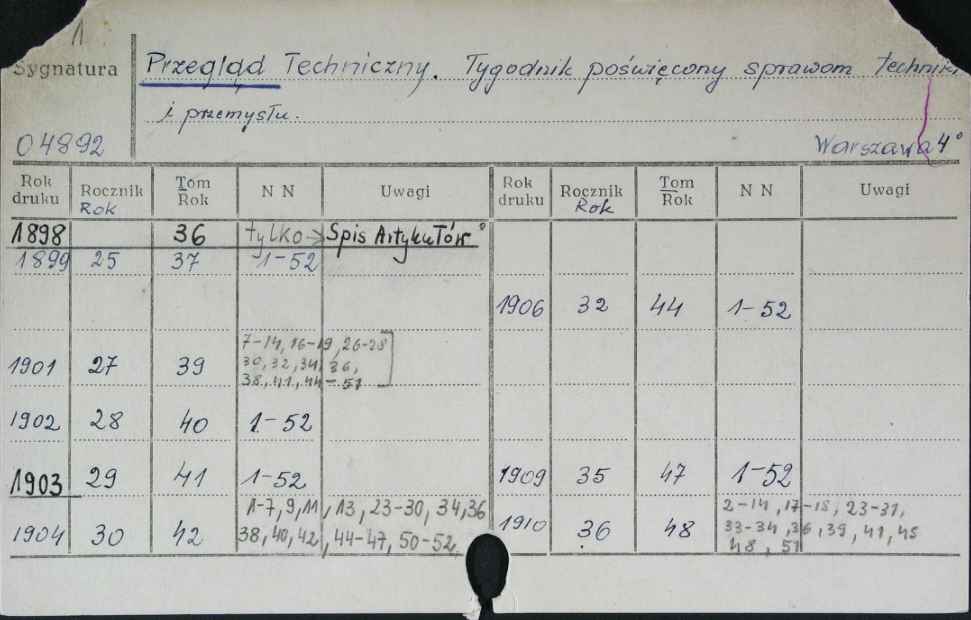 1
Sygnatura
Przegląd Techniczny. Tygodnik poświęcony sprawom techniki
i przemysłu.
04892
Warszawa 4°
Rok druku Rocznik Rok Tom Rok N N Uwagi Rok druku Rocznik Rok Tom Rok N N Uwagi
1898 36 tylko → Spis Artykułów
1899 25 37 1-52
1906 32 44 1-52
7-14, 16-19, 26-28
1901 27 39 30, 32, 34, 36,
38, 41, 44-51
1902 28 40 1-52
1903 29 41 1-52 1909 35 47 1-52
1-7, 9, 11, 13, 23-30, 34, 36
1904 30 42 38, 40, 42, 44-47, 50-52
2-14, 17-18, 23-31,
1910 36 48 33-34, 36, 39, 41, 45
48, 51